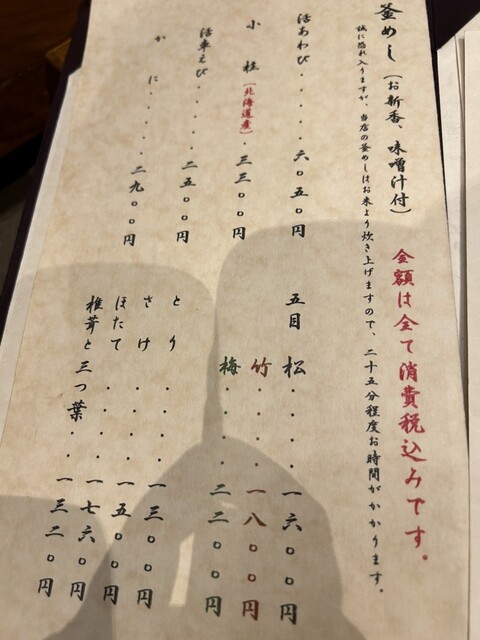 釜めし（お新香、味噌汁付）　金額は全て消費税込みです。
誠に恐れ入りますが、当店の釜めしはお米より炊き上げますので、二十五分程度お時間がかかります。
活あわび・・・・六〇五〇円
小柱（北海道産）・三三〇〇円
活車えび・・・・二五〇〇円
かに・・・・二九〇〇円
五目　松・・・・一六〇〇円
竹・・・・一八〇〇円
梅・・・・二二〇〇円
とり・・・・・一三〇〇円
さけ・・・・・一五〇〇円
ほたて・・・・・一七六〇円
椎茸と三つ葉・・一三二〇円